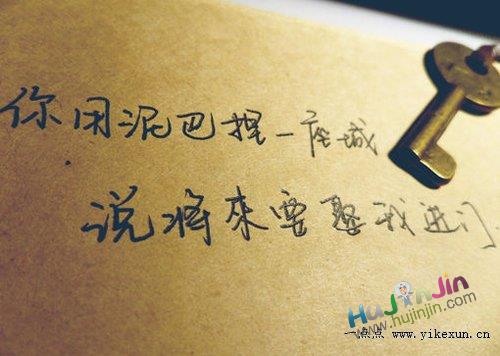 你用泥巴捏一座城
说将來要娶我进门
HuJinJin
www.hujinjin.com
一点点 www.yikexun.cn